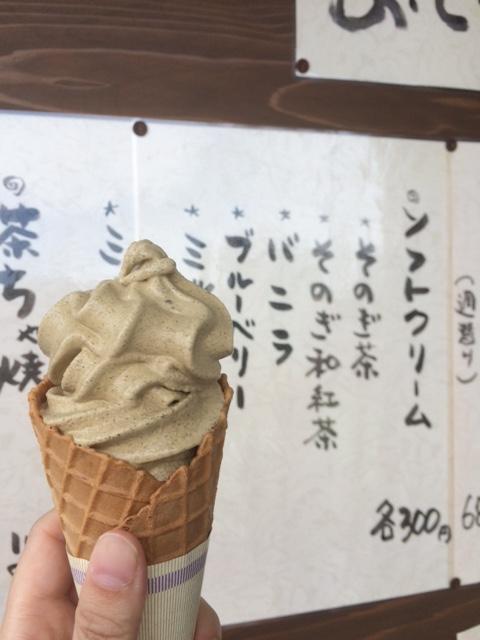 (週替り)
68
ソフトクリーム
*そのぎ茶
*そのぎ和紅茶
*バニラ
*ブルーベリー
*ミ
*ミ
各300円
茶ちゃ焼